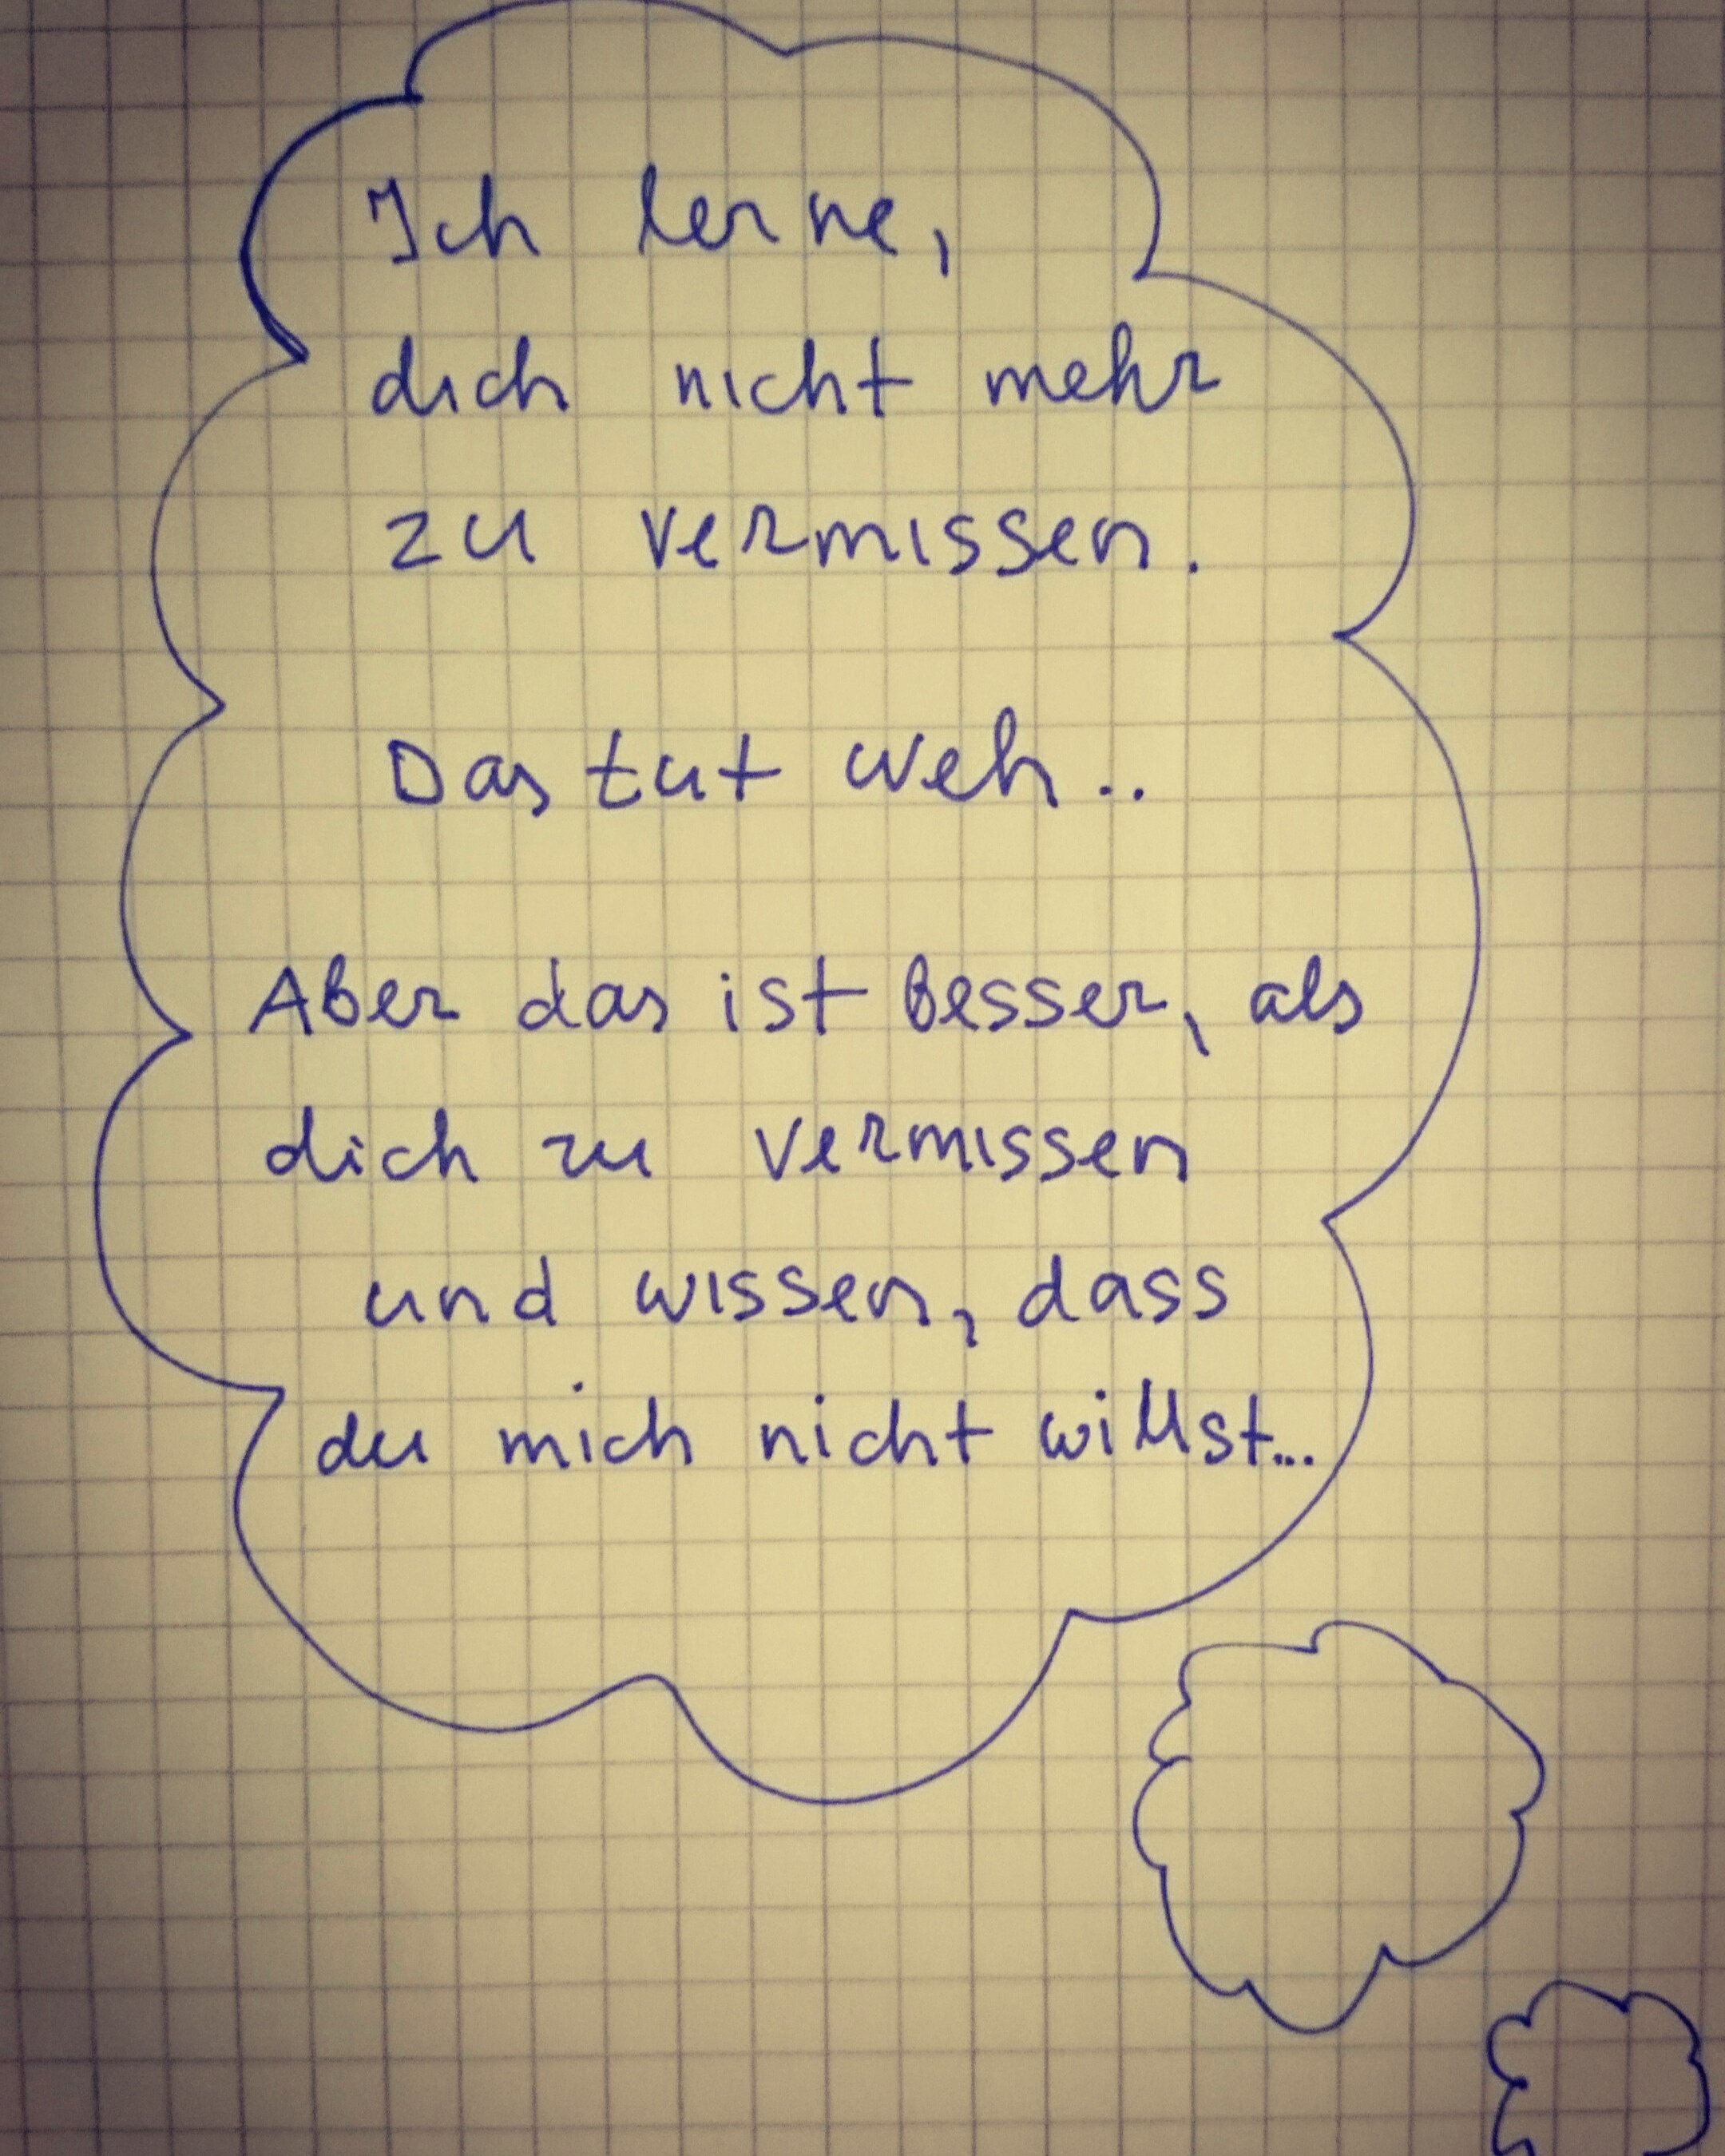 Ich lerne,
dich nicht mehr
zu vermissen.
Das tut weh..
Aber das ist besser, als
dich zu vermissen
und wissen, dass
du mich nicht willst...